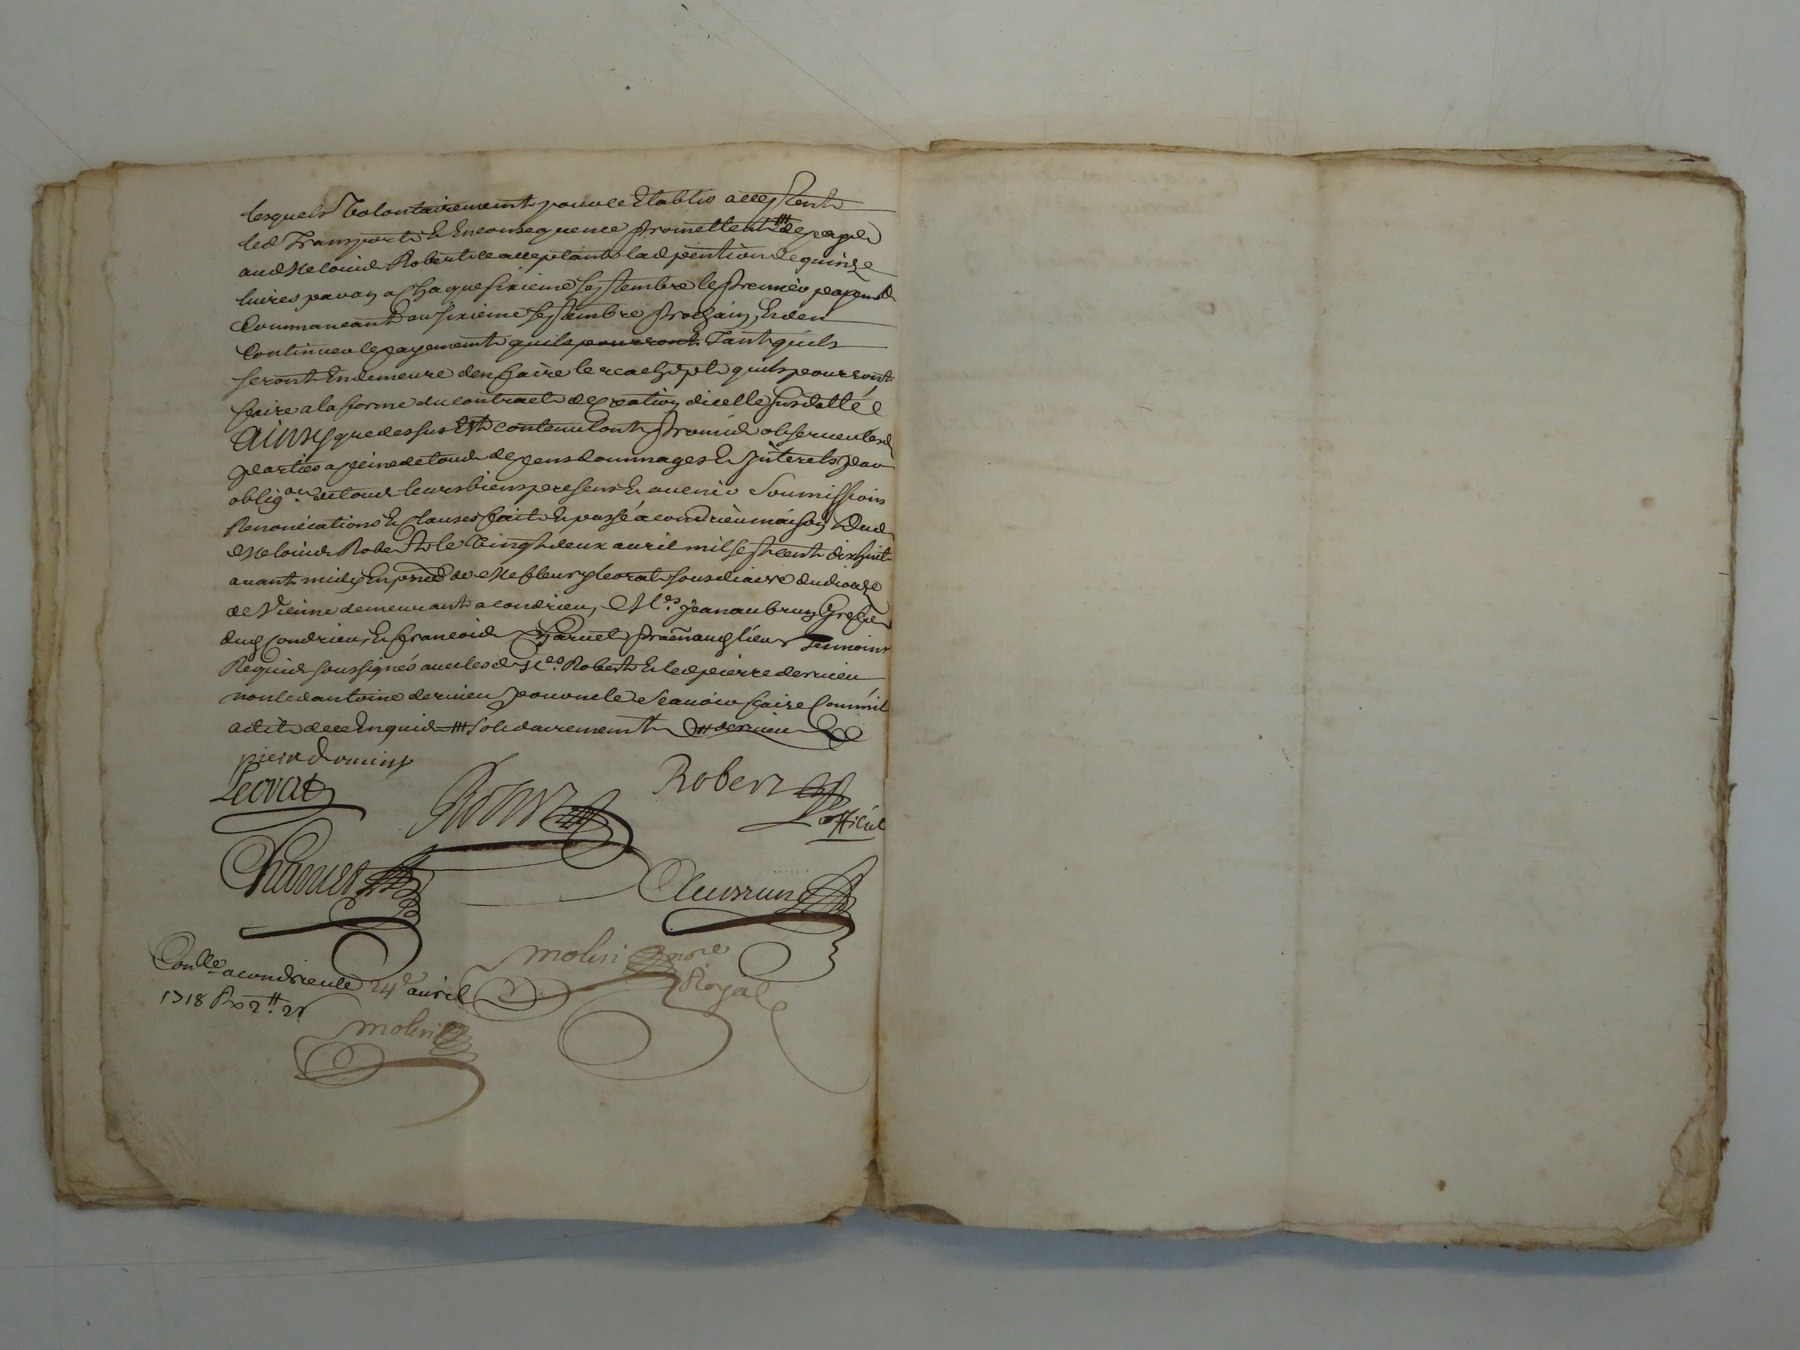 lesquels volontairement pour ce etablis acceptent
led transport Et En consequence promettent de payer
aud Me louis Robert ce acceptant lad pention de quinze
livres par an a chaque sixieme septembre le premier payement
Commancant au sixieme septembre prochain, Et den
Continuer le payement quils pourront Tant quils
seront En demeure den faire le reachept quils pourront
faire a la forme du contract de creation dicelle susdatté
ainsy que dessus Est contenu ont promis observer lesd
parties a peine de tous depens dommages Et interets par
obligon de tous leurs biens presens Et avenir soumissions
Renonciations Et clauses fait Et passé a condrieu maison Dud
Me louis Robert le vingt deux avril mil sept cent dix huit
avant midy En prnce de Me fleury leorat sousdiacre du dioceze
de Vienne demeurant a condrieu, Me jean aubrun Greffier
dud Condrieu, Et francois Charvet pratn aud lieu Temoins
Requis soussignés avec lesd Mes Robert Et led pierre dervieu
non led antoine dervieu pour ne le scavoir faire Comme il
a dit de ce Enquis solidairement dervieu
pierre dervieux
Leorat
Robert Robert
L'officiel
Charvet
Aubrun
molin nore
Royal
Conlle a condrieu le 24e avril
1718 Rx 2tt 2s
molin